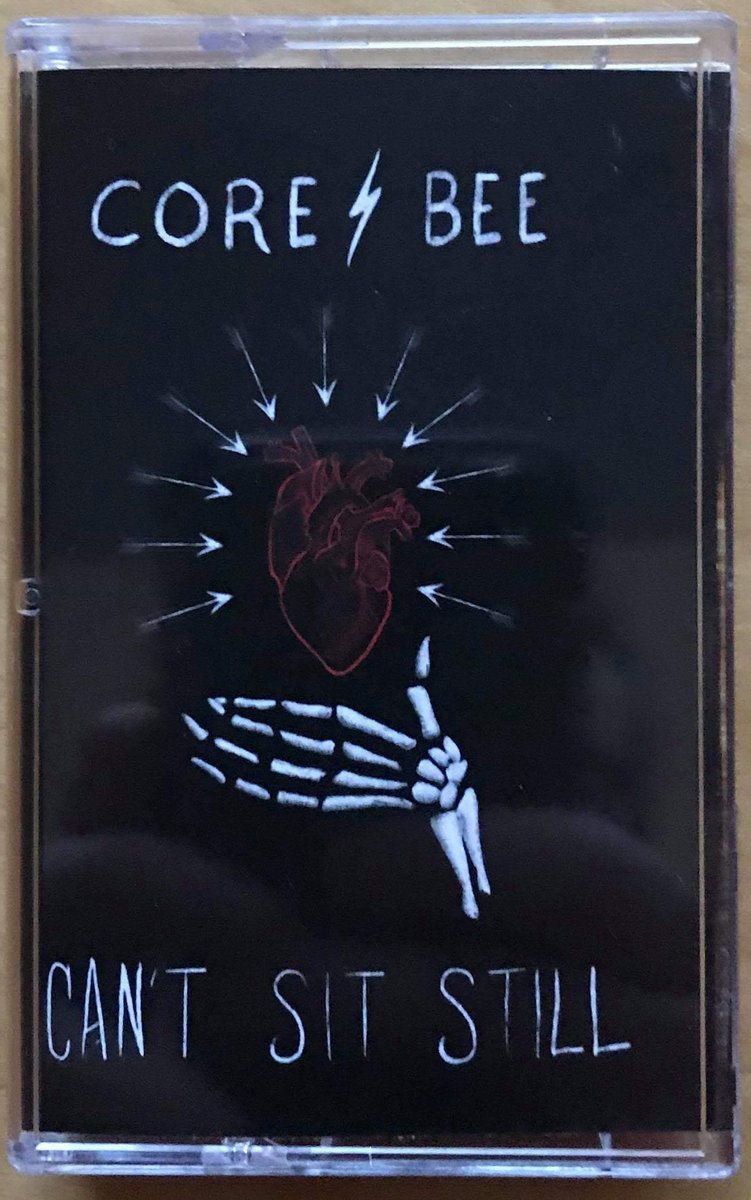 CORE⚡BEE
CAN'T SIT STILL